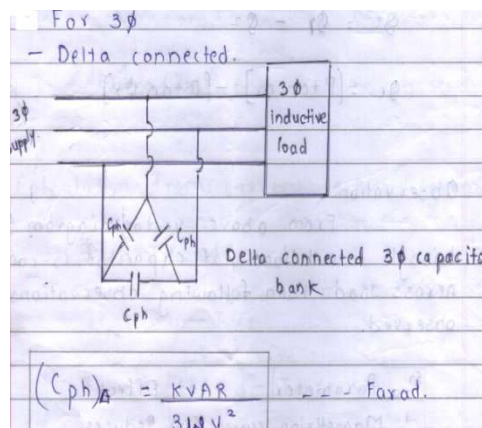 For 3ϕ
- Delta connected.
3ϕ
supply.
3ϕ
inductive
load
Cph
Cph
Cph
Delta connected 3ϕ capacito
bank
(Cph)Δ = KVAR / 3ωV² - - - Farad.